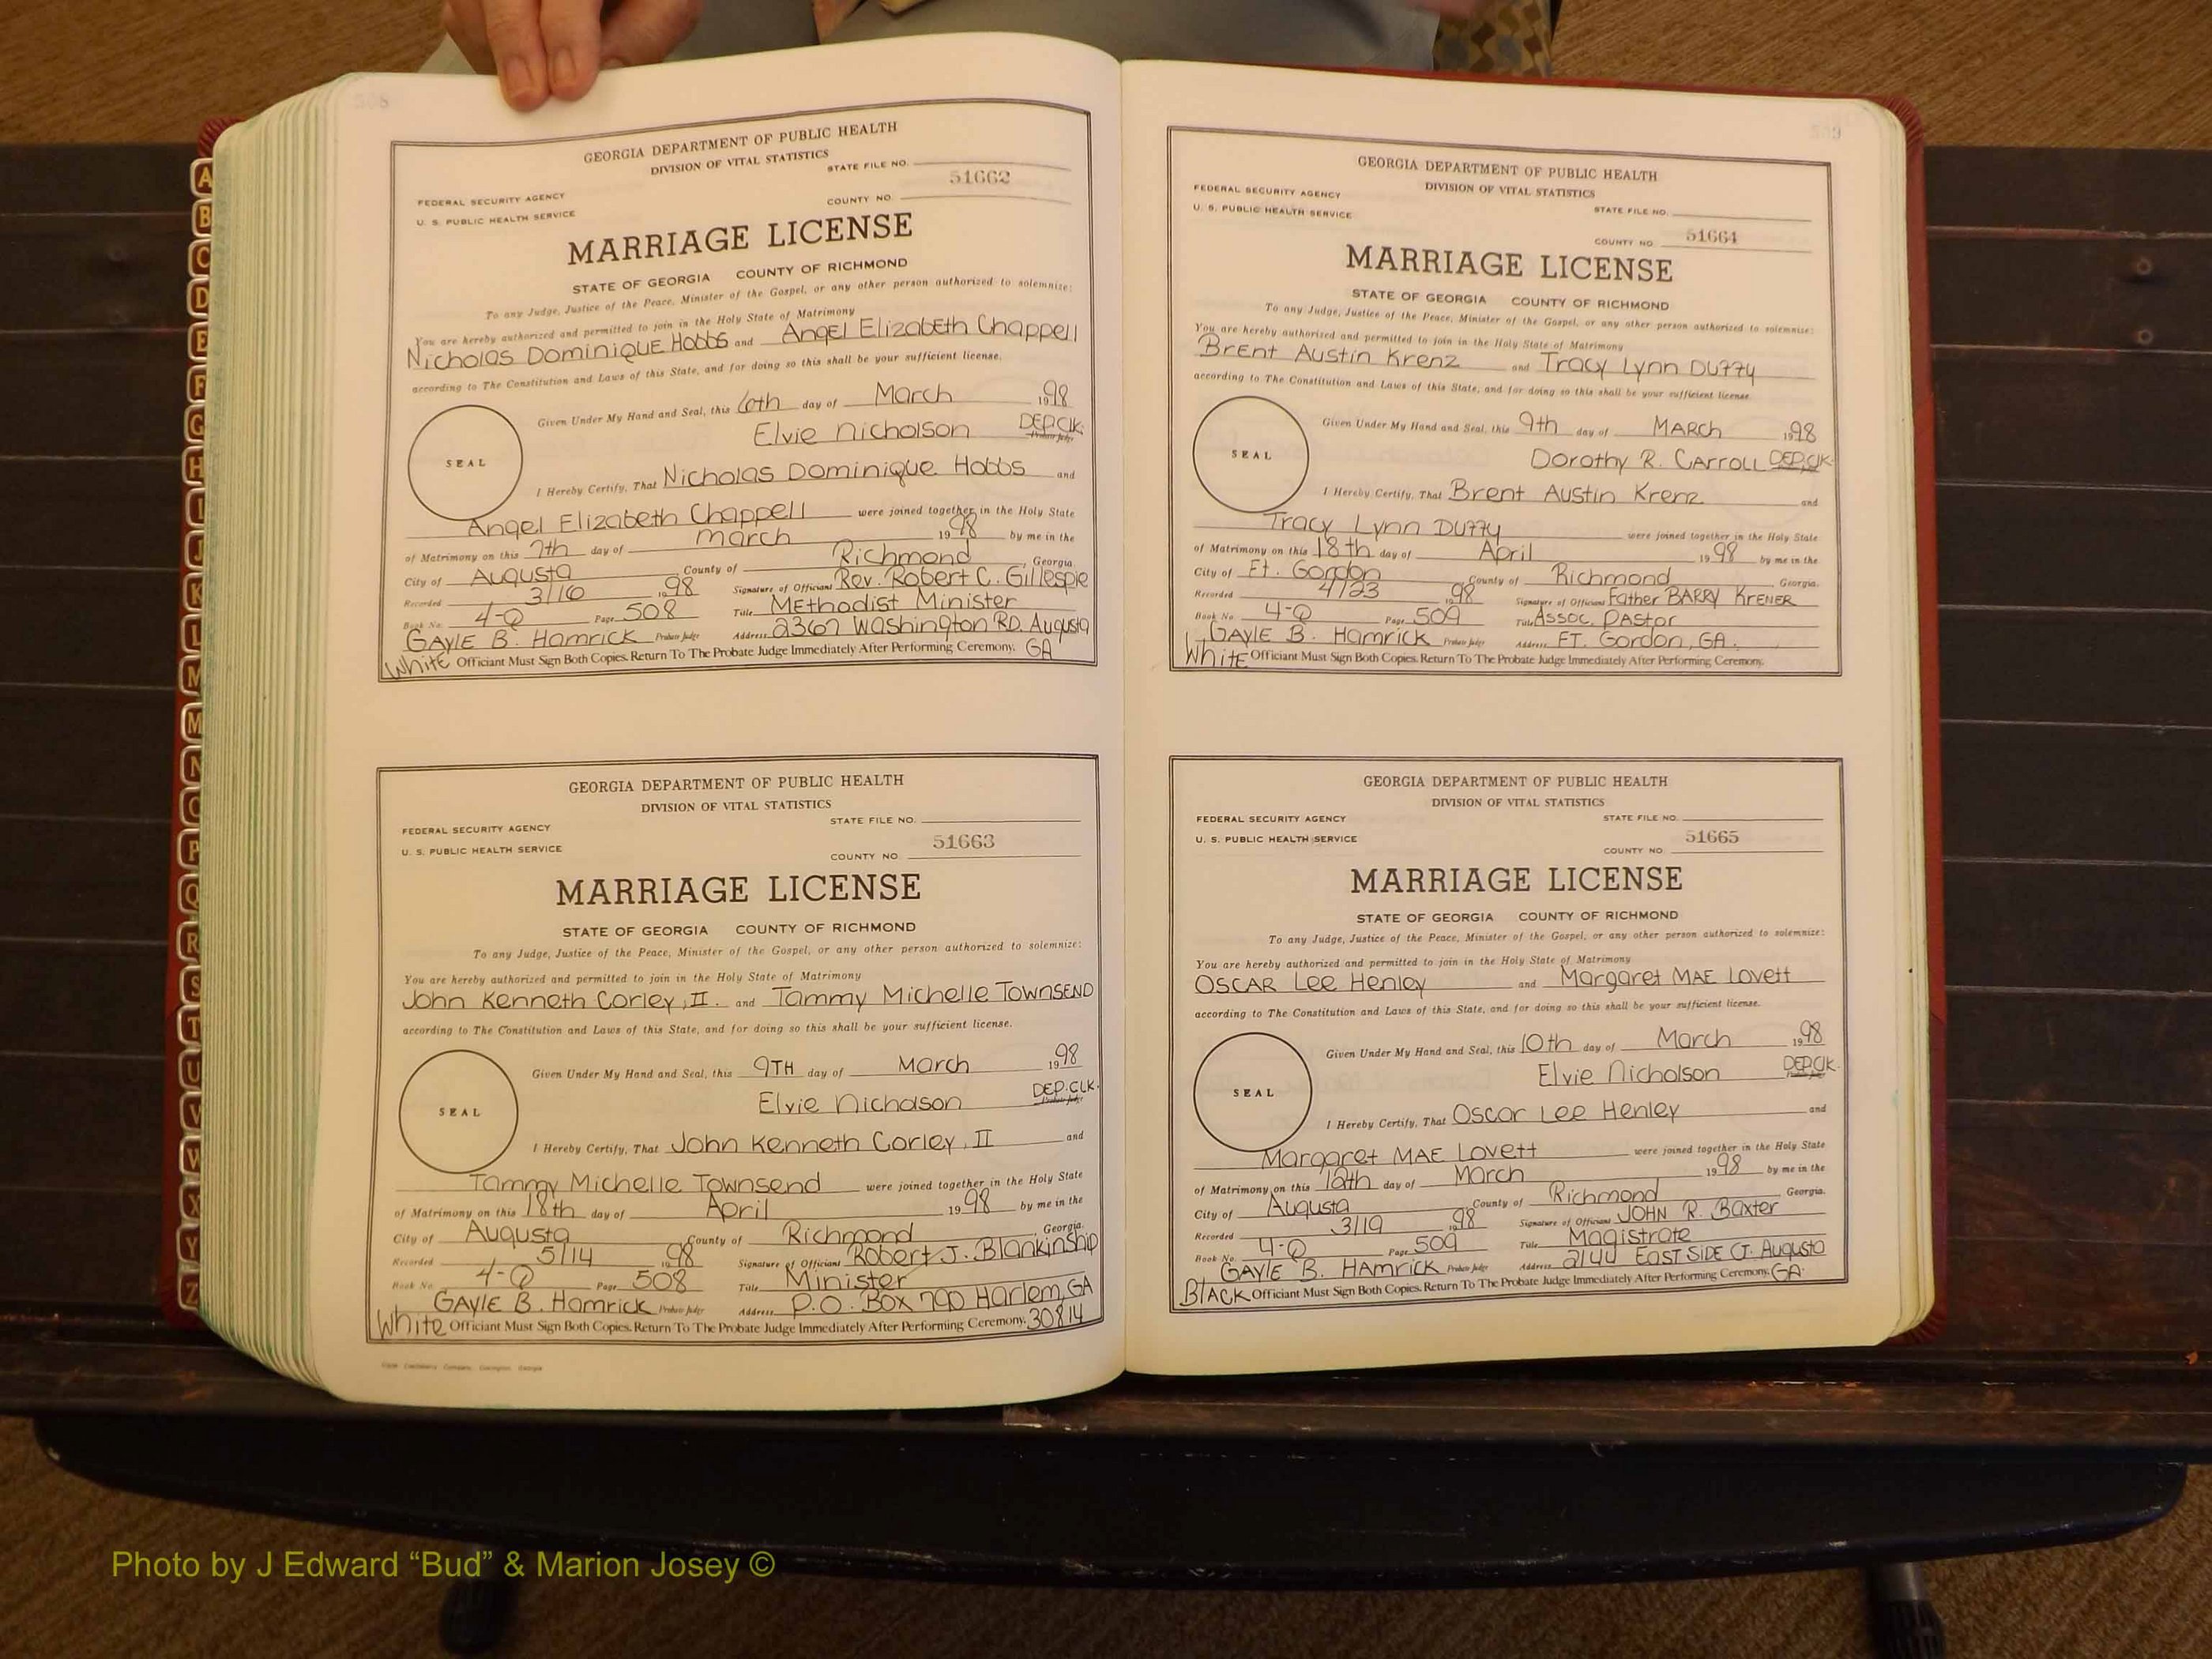 508
GEORGIA DEPARTMENT OF PUBLIC HEALTH
DIVISION OF VITAL STATISTICS
STATE FILE NO.
51662
FEDERAL SECURITY AGENCY
COUNTY NO.
U. S. PUBLIC HEALTH SERVICE
MARRIAGE LICENSE
STATE OF GEORGIA COUNTY OF RICHMOND
To any Judge, Justice of the Peace, Minister of the Gospel, or any other person authorized to solemnize:
You are hereby authorized and permitted to join in the Holy State of Matrimony
Nicholas Dominique Hobbs and Angel Elizabeth Chappell
according to The Constitution and Laws of this State, and for doing so this shall be your sufficient license.
Given Under My Hand and Seal, this 6th day of March 1998
Elvie Nicholson DEP.Clk.
Probate Judge
SEAL
I Hereby Certify, That Nicholas Dominique Hobbs and
Angel Elizabeth Chappell were joined together in the Holy State
of Matrimony on this 7th day of March 1998 by me in the
City of Augusta County of Richmond, Georgia.
Recorded 3/16 1998 Signature of Officiant Rev. Robert C. Gillespie
Book No. 4-Q Page 508 Title Methodist Minister
Gayle B. Hamrick Probate Judge Address 2367 Washington RD. Augusta
White Officiant Must Sign Both Copies. Return To The Probate Judge Immediately After Performing Ceremony. GA
GEORGIA DEPARTMENT OF PUBLIC HEALTH
DIVISION OF VITAL STATISTICS
STATE FILE NO.
FEDERAL SECURITY AGENCY
51663
U. S. PUBLIC HEALTH SERVICE
COUNTY NO.
MARRIAGE LICENSE
STATE OF GEORGIA COUNTY OF RICHMOND
To any Judge, Justice of the Peace, Minister of the Gospel, or any other person authorized to solemnize:
You are hereby authorized and permitted to join in the Holy State of Matrimony
John Kenneth Corley, II. and Tammy Michelle Townsend
according to The Constitution and Laws of this State, and for doing so this shall be your sufficient license.
Given Under My Hand and Seal, this 9TH day of March 1998
Elvie Nicholson DEP.CLK.
Probate Judge
SEAL
I Hereby Certify, That John Kenneth Corley, II and
Tammy Michelle Townsend were joined together in the Holy State
of Matrimony on this 18th day of April 1998 by me in the
City of Augusta County of Richmond, Georgia.
Recorded 5/14 1998 Signature of Officiant Robert J. Blankinship
Book No. 4-Q Page 508 Title Minister
Gayle B. Hamrick Probate Judge Address P.O. Box 790 Harlem, GA
White Officiant Must Sign Both Copies. Return To The Probate Judge Immediately After Performing Ceremony. 30814
509
GEORGIA DEPARTMENT OF PUBLIC HEALTH
DIVISION OF VITAL STATISTICS
FEDERAL SECURITY AGENCY
STATE FILE NO.
U. S. PUBLIC HEALTH SERVICE
COUNTY NO. 51664
MARRIAGE LICENSE
STATE OF GEORGIA COUNTY OF RICHMOND
To any Judge, Justice of the Peace, Minister of the Gospel, or any other person authorized to solemnize:
You are hereby authorized and permitted to join in the Holy State of Matrimony
Brent Austin Krenz and Tracy Lynn Duffy
according to The Constitution and Laws of this State, and for doing so this shall be your sufficient license.
Given Under My Hand and Seal, this 9th day of March 1998
Dorothy R. Carroll DEP.Clk.
SEAL
I Hereby Certify, That Brent Austin Krenz and
Tracy Lynn Duffy were joined together in the Holy State
of Matrimony on this 18th day of April 1998 by me in the
City of Ft. Gordon County of Richmond, Georgia.
Recorded 4/23 1998 Signature of Officiant Father Barry Krener
Book No. 4-Q Page 509 Title Assoc. Pastor
Gayle B. Hamrick Probate Judge Address FT. Gordon, GA.
White Officiant Must Sign Both Copies. Return To The Probate Judge Immediately After Performing Ceremony.
GEORGIA DEPARTMENT OF PUBLIC HEALTH
DIVISION OF VITAL STATISTICS
FEDERAL SECURITY AGENCY
STATE FILE NO.
U. S. PUBLIC HEALTH SERVICE
51665
COUNTY NO.
MARRIAGE LICENSE
STATE OF GEORGIA COUNTY OF RICHMOND
To any Judge, Justice of the Peace, Minister of the Gospel, or any other person authorized to solemnize:
You are hereby authorized and permitted to join in the Holy State of Matrimony
Oscar Lee Henley and Margaret Mae Lovett
according to The Constitution and Laws of this State, and for doing so this shall be your sufficient license.
Given Under My Hand and Seal, this 10th day of March 1998
Elvie Nicholson DEP.Clk.
Probate Judge
SEAL
I Hereby Certify, That Oscar Lee Henley and
Margaret Mae Lovett were joined together in the Holy State
of Matrimony on this day of March 1998 by me in the
City of Augusta County of Richmond Georgia.
Recorded 3/19 1998 Signature of Officiant John R. Baxter
Book No. 4-Q Page 509 Title Magistrate
Gayle B. Hamrick Probate Judge Address 2144 East Side Ct. Augusta
Black Officiant Must Sign Both Copies. Return To The Probate Judge Immediately After Performing Ceremony. GA.
A
B
C
D
E
F
G
H
I
J
K
L
M
M
N
O
P
Q
R
S
T
U
V
W
X
Y
Z
Photo by J Edward “Bud” & Marion Josey ©